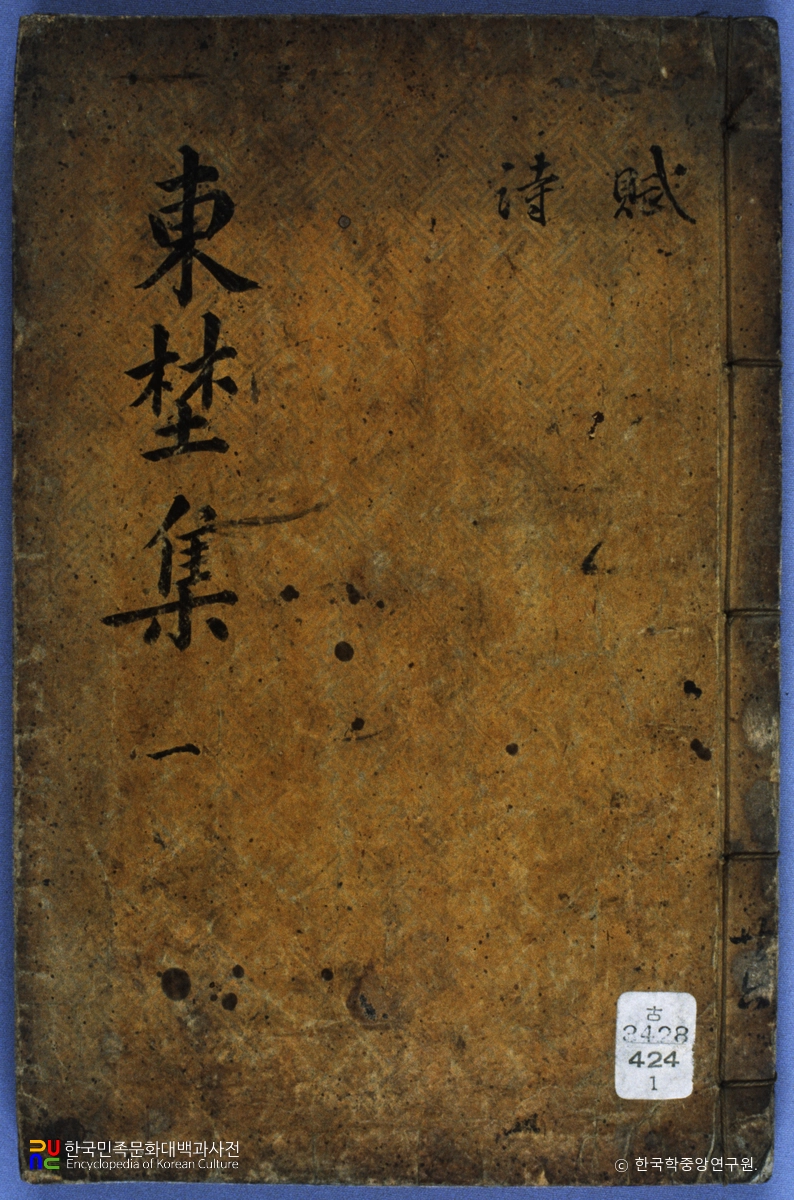 賦
詩
東埜集 一
古
3428
424
1
한국민족문화대백과사전
Encyclopedia of Korean Culture
© 한국학중앙연구원.